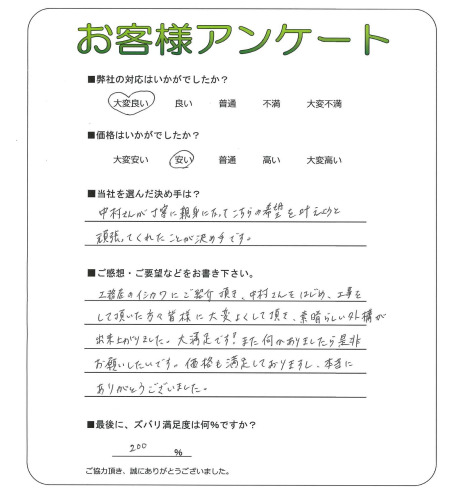 お客様アンケート
■弊社の対応はいかがでしたか？
大変良い 良い 普通 不満 大変不満
■価格はいかがでしたか？
大変安い 安い 普通 高い 大変高い
■当社を選んだ決め手は？
中村さんが丁寧に親身になってこちらの希望を叶えようと
頑張ってくれたことが決め手です。
■ご感想・ご要望などをお書き下さい。
工務店のイシカワにご紹介頂き、中村さんをはじめ、工事を
して頂いた方々皆様に大変よくして頂き、素晴らしい外構が
出来上がりました。大満足です！また何かありましたら是非
お願いしたいです。価格も満足しておりますし、本当に
ありがとうございました。
■最後に、ズバリ満足度は何％ですか？
200 ％
ご協力頂き、誠にありがとうございました。